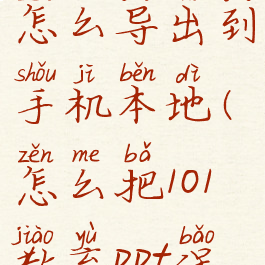 怎么导出到
shǒu jī běn dì
手机本地(
zěn me bǎ
怎么把101
jiào yù bǎo
教育ppt保